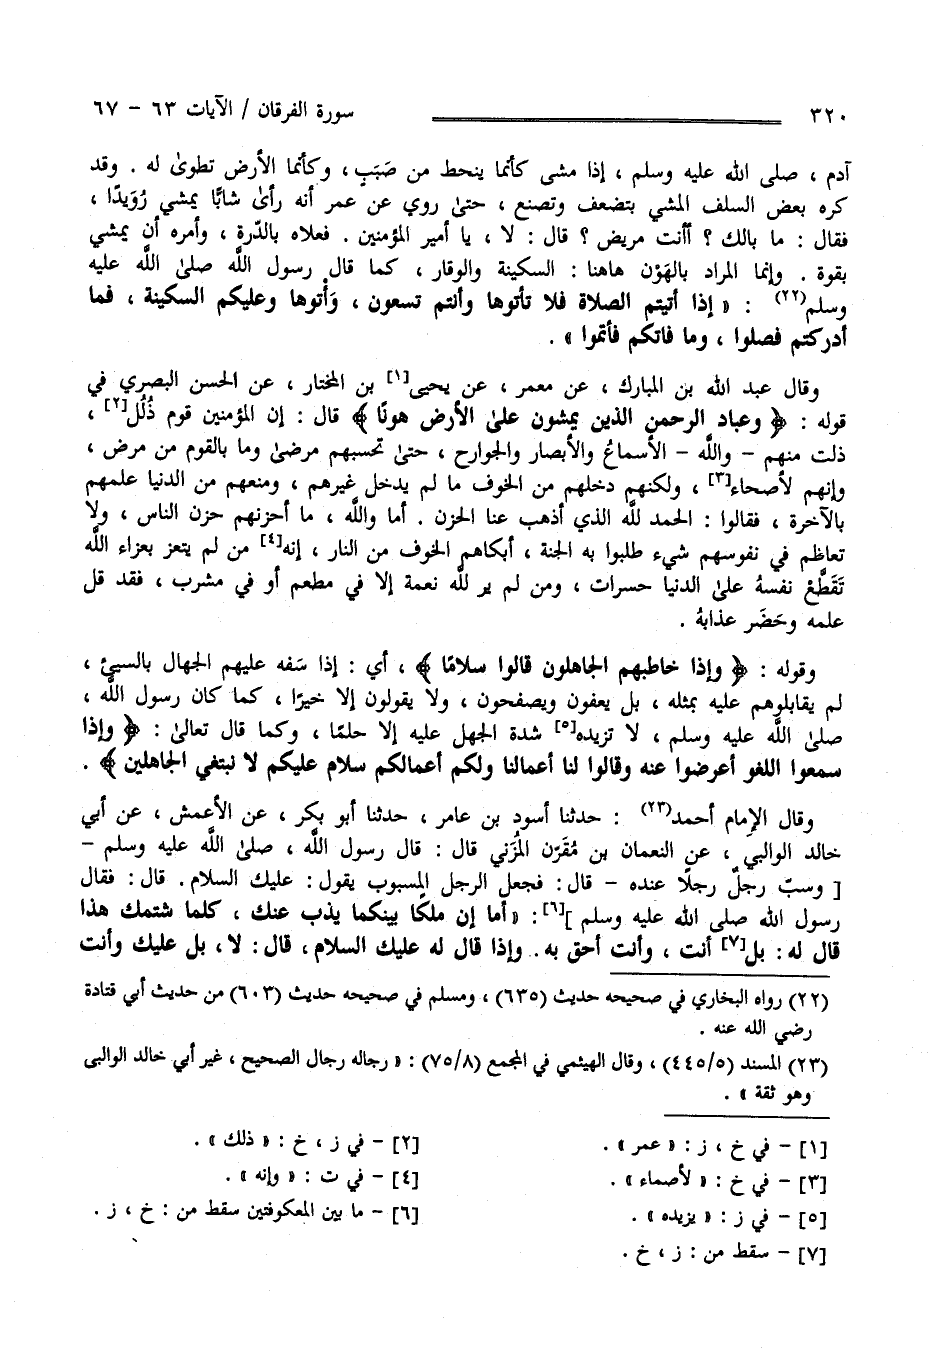 ٣٢٠ سورة الفرقان / الآيات ٦٣ - ٦٧
آدم ، صلى الله عليه وسلم ، إذا مشى كأنما ينحط من صَبَبٍ ، وكأنما الأرض تطوىٰ له . وقد
كره بعض السلف المشي بتضعف وتصنع ، حتىٰ روي عن عمر أنه رأىٰ شابًّا يمشي رُوَيدًا ،
فقال : ما بالك ؟ أأنت مريض ؟ قال : لا ، يا أمير المؤمنين . فعلاه بالدّرة ، وأمره أن يمشي
بقوة . وإنما المراد بالهَوْن هاهنا : السكينة والوقار ، كما قال رسول اللَّه صلىٰ اللَّه عليه
وسلم(٢٢) : « إذا أتيتم الصلاة فلا تأتوها وأنتم تسعون ، وَأْتوها وعليكم السكينة ، فما
أدركتم فصلوا ، وما فاتكم فأتموا » .
وقال عبد الله بن المبارك ، عن معمر ، عن يحيى[١] بن المختار ، عن الحسن البصري في
قوله : ﴿ وعباد الرحمن الذين يمشون علىٰ الأرض هونًا ﴾ قال : إن المؤمنين قوم ذُلُل[٢] ،
ذلت منهم - واللَّه - الأسماعُ والأبصار والجوارح ، حتىٰ تحسبهم مرضىٰ وما بالقوم من مرض ،
وإنهم لأصحاء[٣] ، ولكنهم دخلهم من الخوف ما لم يدخل غيرهم ، ومنعهم من الدنيا علمهم
بالآخرة ، فقالوا : الحمد للَّه الذي أذهب عنا الحزن . أما واللَّه ، ما أحزنهم حزن الناس ، ولا
تعاظم في نفوسهم شيء طلبوا به الجنة ، أبكاهم الخوف من النار ، إنه[٤] من لم يتعز بعزاء اللَّه
تَقَطَّعْ نفسهُ علىٰ الدنيا حسرات ، ومن لم ير للَّه نعمة إلا في مطعم أو في مشرب ، فقد قل
علمه وحَضَر عذابهُ .
وقوله : ﴿ وإذا خاطبهم الجاهلون قالوا سلامًا ﴾ ، أي : إذا سَفه عليهم الجهال بالسيئ ،
لم يقابلوهم عليه بمثله ، بل يعفون ويصفحون ، ولا يقولون إلا خيرًا ، كما كان رسول اللَّه ،
صلىٰ اللَّه عليه وسلم ، لا تزيده[٥] شدة الجهل عليه إلا حلمًا ، وكما قال تعالىٰ : ﴿ وإذا
سمعوا اللغو أعرضوا عنه وقالوا لنا أعمالنا ولكم أعمالكم سلام عليكم لا نبتغي الجاهلين ﴾ .
وقال الإمام أحمد(٢٣) : حدثنا أسود بن عامر ، حدثنا أبو بكر ، عن الأعمش ، عن أبي
خالد الوالبي ، عن النعمان بن مُقَرّن المُزَني قال : قال رسول اللَّه ، صلىٰ اللَّه عليه وسلم -
[ وسبّ رجلٌ رجلًا عنده - قال : فجعل الرجل المسبوب يقول : عليك السلام . قال : فقال
رسول الله صلى الله عليه وسلم ][٦] : « أما إن ملكًا بينكما يذب عنك ، كلما شتمك هذا
قال له : بل[٧] أنت ، وأنت أحق به . وإذا قال له عليك السلام ، قال : لا ، بل عليك وأنت
(٢٢) رواه البخاري في صحيحه حديث (٦٣٥) ، ومسلم في صحيحه حديث (٦٠٣) من حديث أبي قتادة
رضي الله عنه .
(٢٣) المسند (٤٤٥/٥) ، وقال الهيثمي في المجمع (٧٥/٨) : « رجاله رجال الصحيح ، غير أبي خالد الوالبى
وهو ثقة » .
[١] - في خ ، ز : « عمر » . [٢] - في ز ، خ : « ذلك » .
[٣] - في خ : « لأصماء » . [٤] - في ت : « وإنه » .
[٥] - في ز : « يزيده » . [٦] - ما بين المعكوفتين سقط من : خ ، ز .
[٧] - سقط من : ز ، خ .